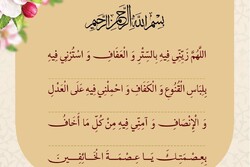 بِسْمِ اللهِ الرَّحْمٰنِ الرَّحِيمِ
اَللَّهُمَّ زَيِّنِّي فِيهِ بِالسِّتْرِ وَ الْعَفَافِ وَ اسْتُرْنِي فِيهِ
بِلِبَاسِ الْقُنُوعِ وَ الْكَفَافِ وَ احْمِلْنِي فِيهِ عَلَى الْعَدْلِ
وَ الْإِنْصَافِ وَ آمِنِّي فِيهِ مِنْ كُلِّ مَا أَخَافُ
بِعِصْمَتِكَ يَا عِصْمَةَ الْخَائِفِينَ